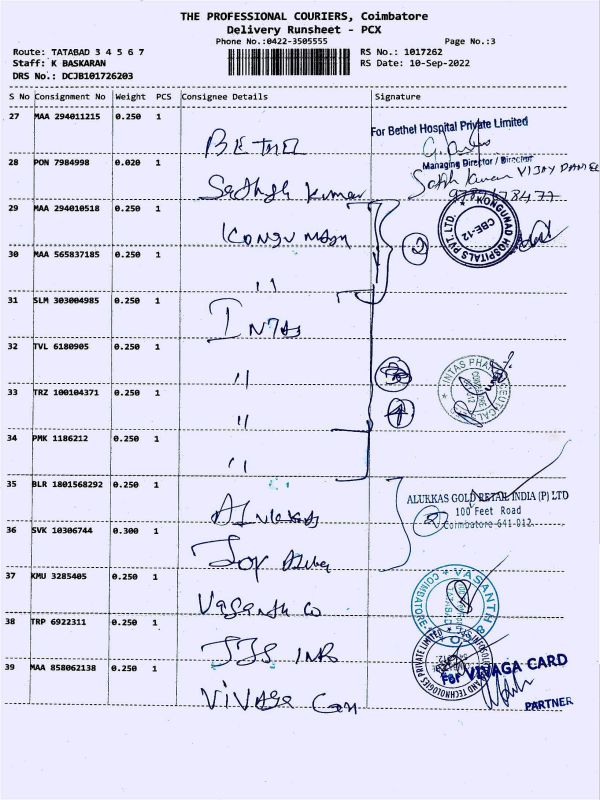 THE PROFESSIONAL COURIERS, Coimbatore
Delivery Runsheet - PCX
Phone No.:0422-3505555 Page No.:3
Route: TATABAD 3 4 5 6 7 RS No.: 1017262
Staff: K BASKARAN RS Date: 10-Sep-2022
DRS No.: DCJB101726203
S No Consignment No Weight PCS Consignee Details Signature
27 MAA 294011215 0.250 1
For Bethel Hospital Private Limited
BETHEL
Managing Director / Director
28 PON 7984998 0.020 1
Sathish Kumar VIJAY DANIEL
Sathish Kumar
29 MAA 294010518 0.250 1
KONGUNAD HOSPITALS PVT. LTD.
CBE-12
Kongunadu
2
30 MAA 565837185 0.250 1
"
31 SLM 303004985 0.250 1
Intas
32 TVL 6180905 0.250 1
"
INTAS PHARMACEUTICAL
33 TRZ 100104371 0.250 1
"
4
34 PMK 1186212 0.250 1
"
35 BLR 1801568292 0.250 1
ALURKAS GOLD RETAIL INDIA (P) LTD
100 Feet Road
Coimbatore 641 012
Alukkas
2
36 SVK 10306744 0.300 1
Joy Alukkas
37 KMU 3285405 0.250 1
VASANTH & CO
COIMBATORE
Vasanth Co
38 TRP 6922311 0.250 1
AND TECHNOLOGIES PRIVATE LIMITED
39 MAA 858062138 0.250 1
For VIVAGA CARD
Vivaga Car
PARTNER